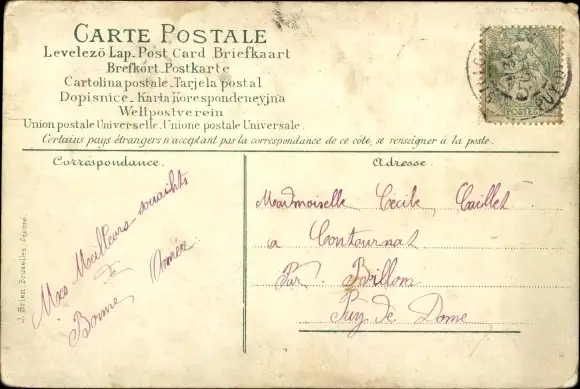 CARTE POSTALE
Levelező Lap_Post Card Briefkaart
Brefkort_Postkarte
Cartolina postale_Tarjela postal
Dopisnice_Karta Korespondencyjna
Weltpostverein
Union postale Universelle_Unione postale Universale.
Certains pays étrangers n'acceptant pas la correspondance de ce côté, se renseigner à la poste.
Correspondance.
Mes Meilleurs souaihts
de
Bonne Année
Adresse.
Mademoiselle Cécile Caillet
a Contournat
Par Billom
Puy de Dome
J. Brien Bruxelles
5
POSTES
PUY